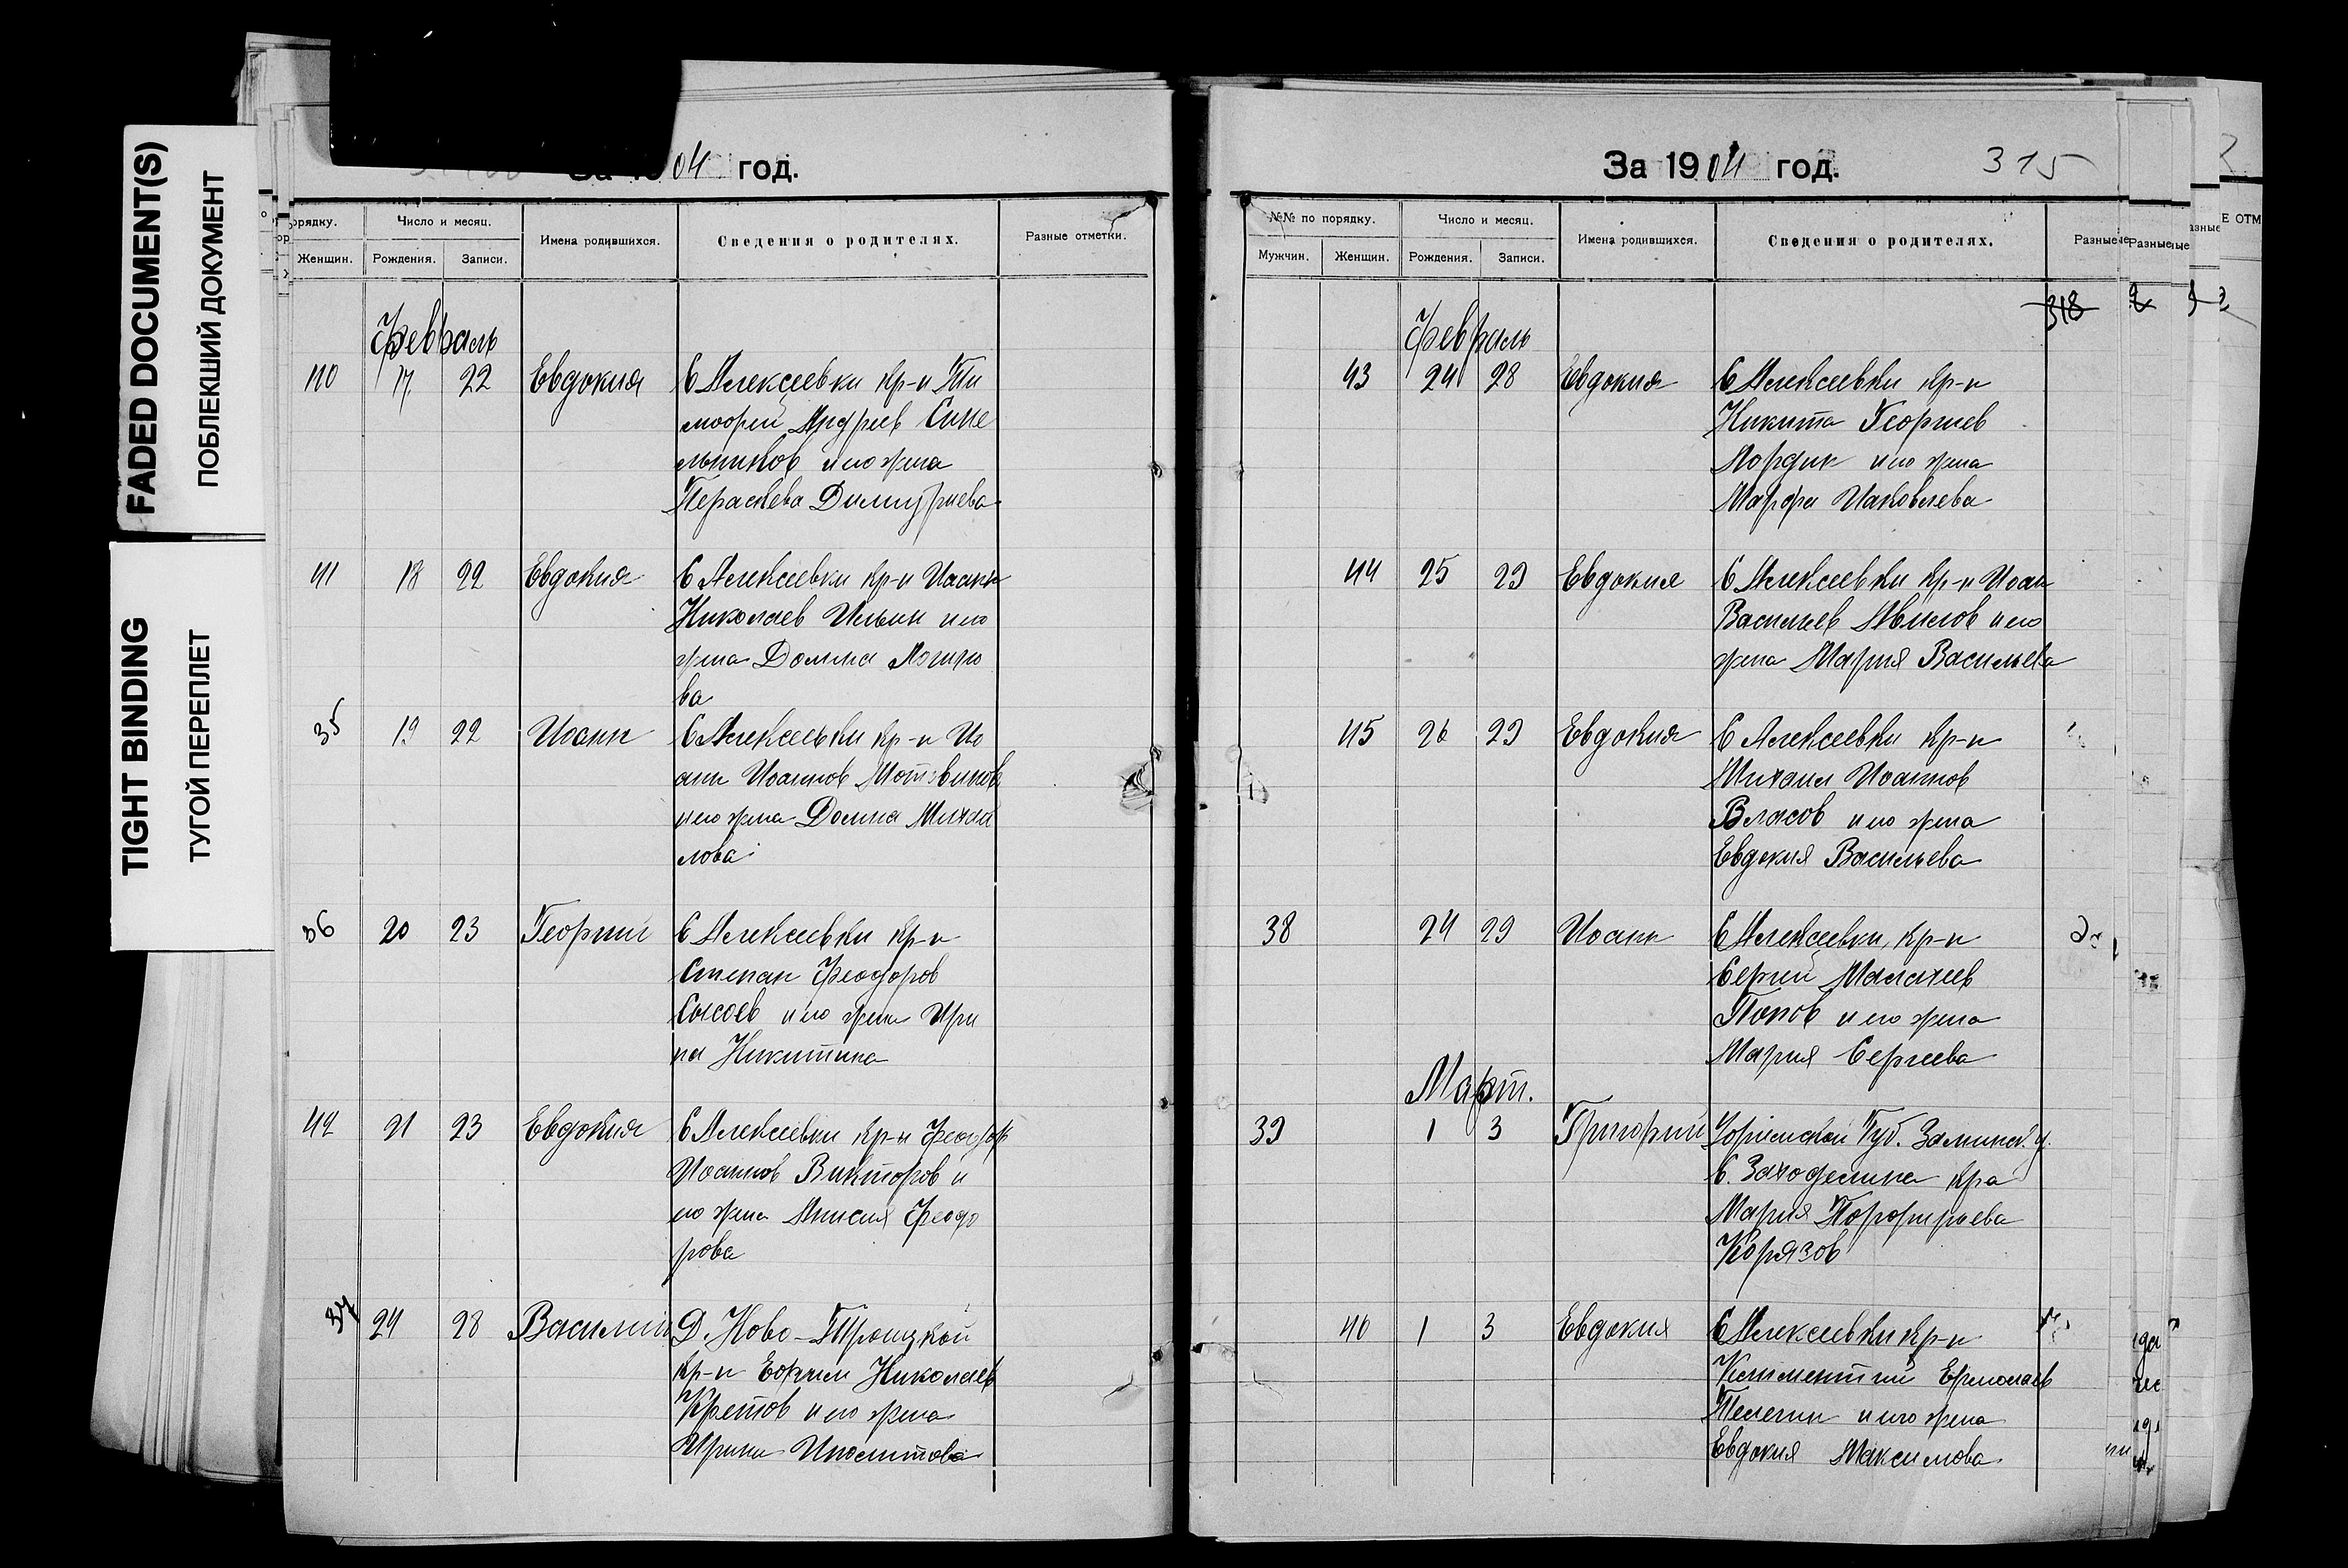 FADED DOCUMENT(S)
ПОБЛЕКШИЙ ДОКУМЕНТ
TIGHT BINDING
ТУГОЙ ПЕРЕПЛЕТ
04 год.
орядку.
Число и месяц.
Имена родившихся.
Сведения о родителях.
Разные отметки.
Женщин.
Рождения.
Записи.
Февраль
40 17 22 Евдокия С Алексеевки кр-н Ти
мофей Андреев Сине
льников и его жена
Параскева Димитриева
41 18 22 Евдокия С Алексеевки кр-н Иоанн
Николаев Ильин и его
жена Домна Логино
ва
35 19 22 Иоанн С Алексеевки кр-н Ио
анн Иоаннов Мотовилов
и его жена Домна Михаи
лова
36 20 23 Георгий С Алексеевки кр-н
Степан Феодоров
Сысоев и его жена Ири
на Никитина
42 21 23 Евдокия С Алексеевки кр-н Феодор
Иоаннов Викторов и
его жена Анисия Феодо
рова
37 24 28 Василий Д. Ново-Троицкой
кр-н Ефим Николаев
Кретов и его жена
Ирина Иполитова
За 1904 год.
315
№№ по порядку.
Число и месяц.
Имена родившихся.
Сведения о родителях.
Разные
Мужчин.
Женщин.
Рождения.
Записи.
318
Февраль
43 24 28 Евдокия С Алексеевки кр-н
Никита Георгиев
и его жена
Марфа Иаковлева
44 25 29 Евдокия С Алексеевки кр-н Иоан
Васильев Авилов и его
жена Мария Васильева
45 26 29 Евдокия С Алексеевки кр-н
Михаил Иоаннов
Власов и его жена
Евдокия Васильева
38 24 29 Иоанн С Алексеевки, кр-н
Сергий Малахиев
Попов и его жена
Мария Сергиева
Март.
39 1 3 Григорий Губ.
С. кра
Мария Порфирьева
Корязов
46 1 3 Евдокия С Алексеевки кр-н
Климентий Ермолаев
Телегин и его жена
Евдокия Максимова